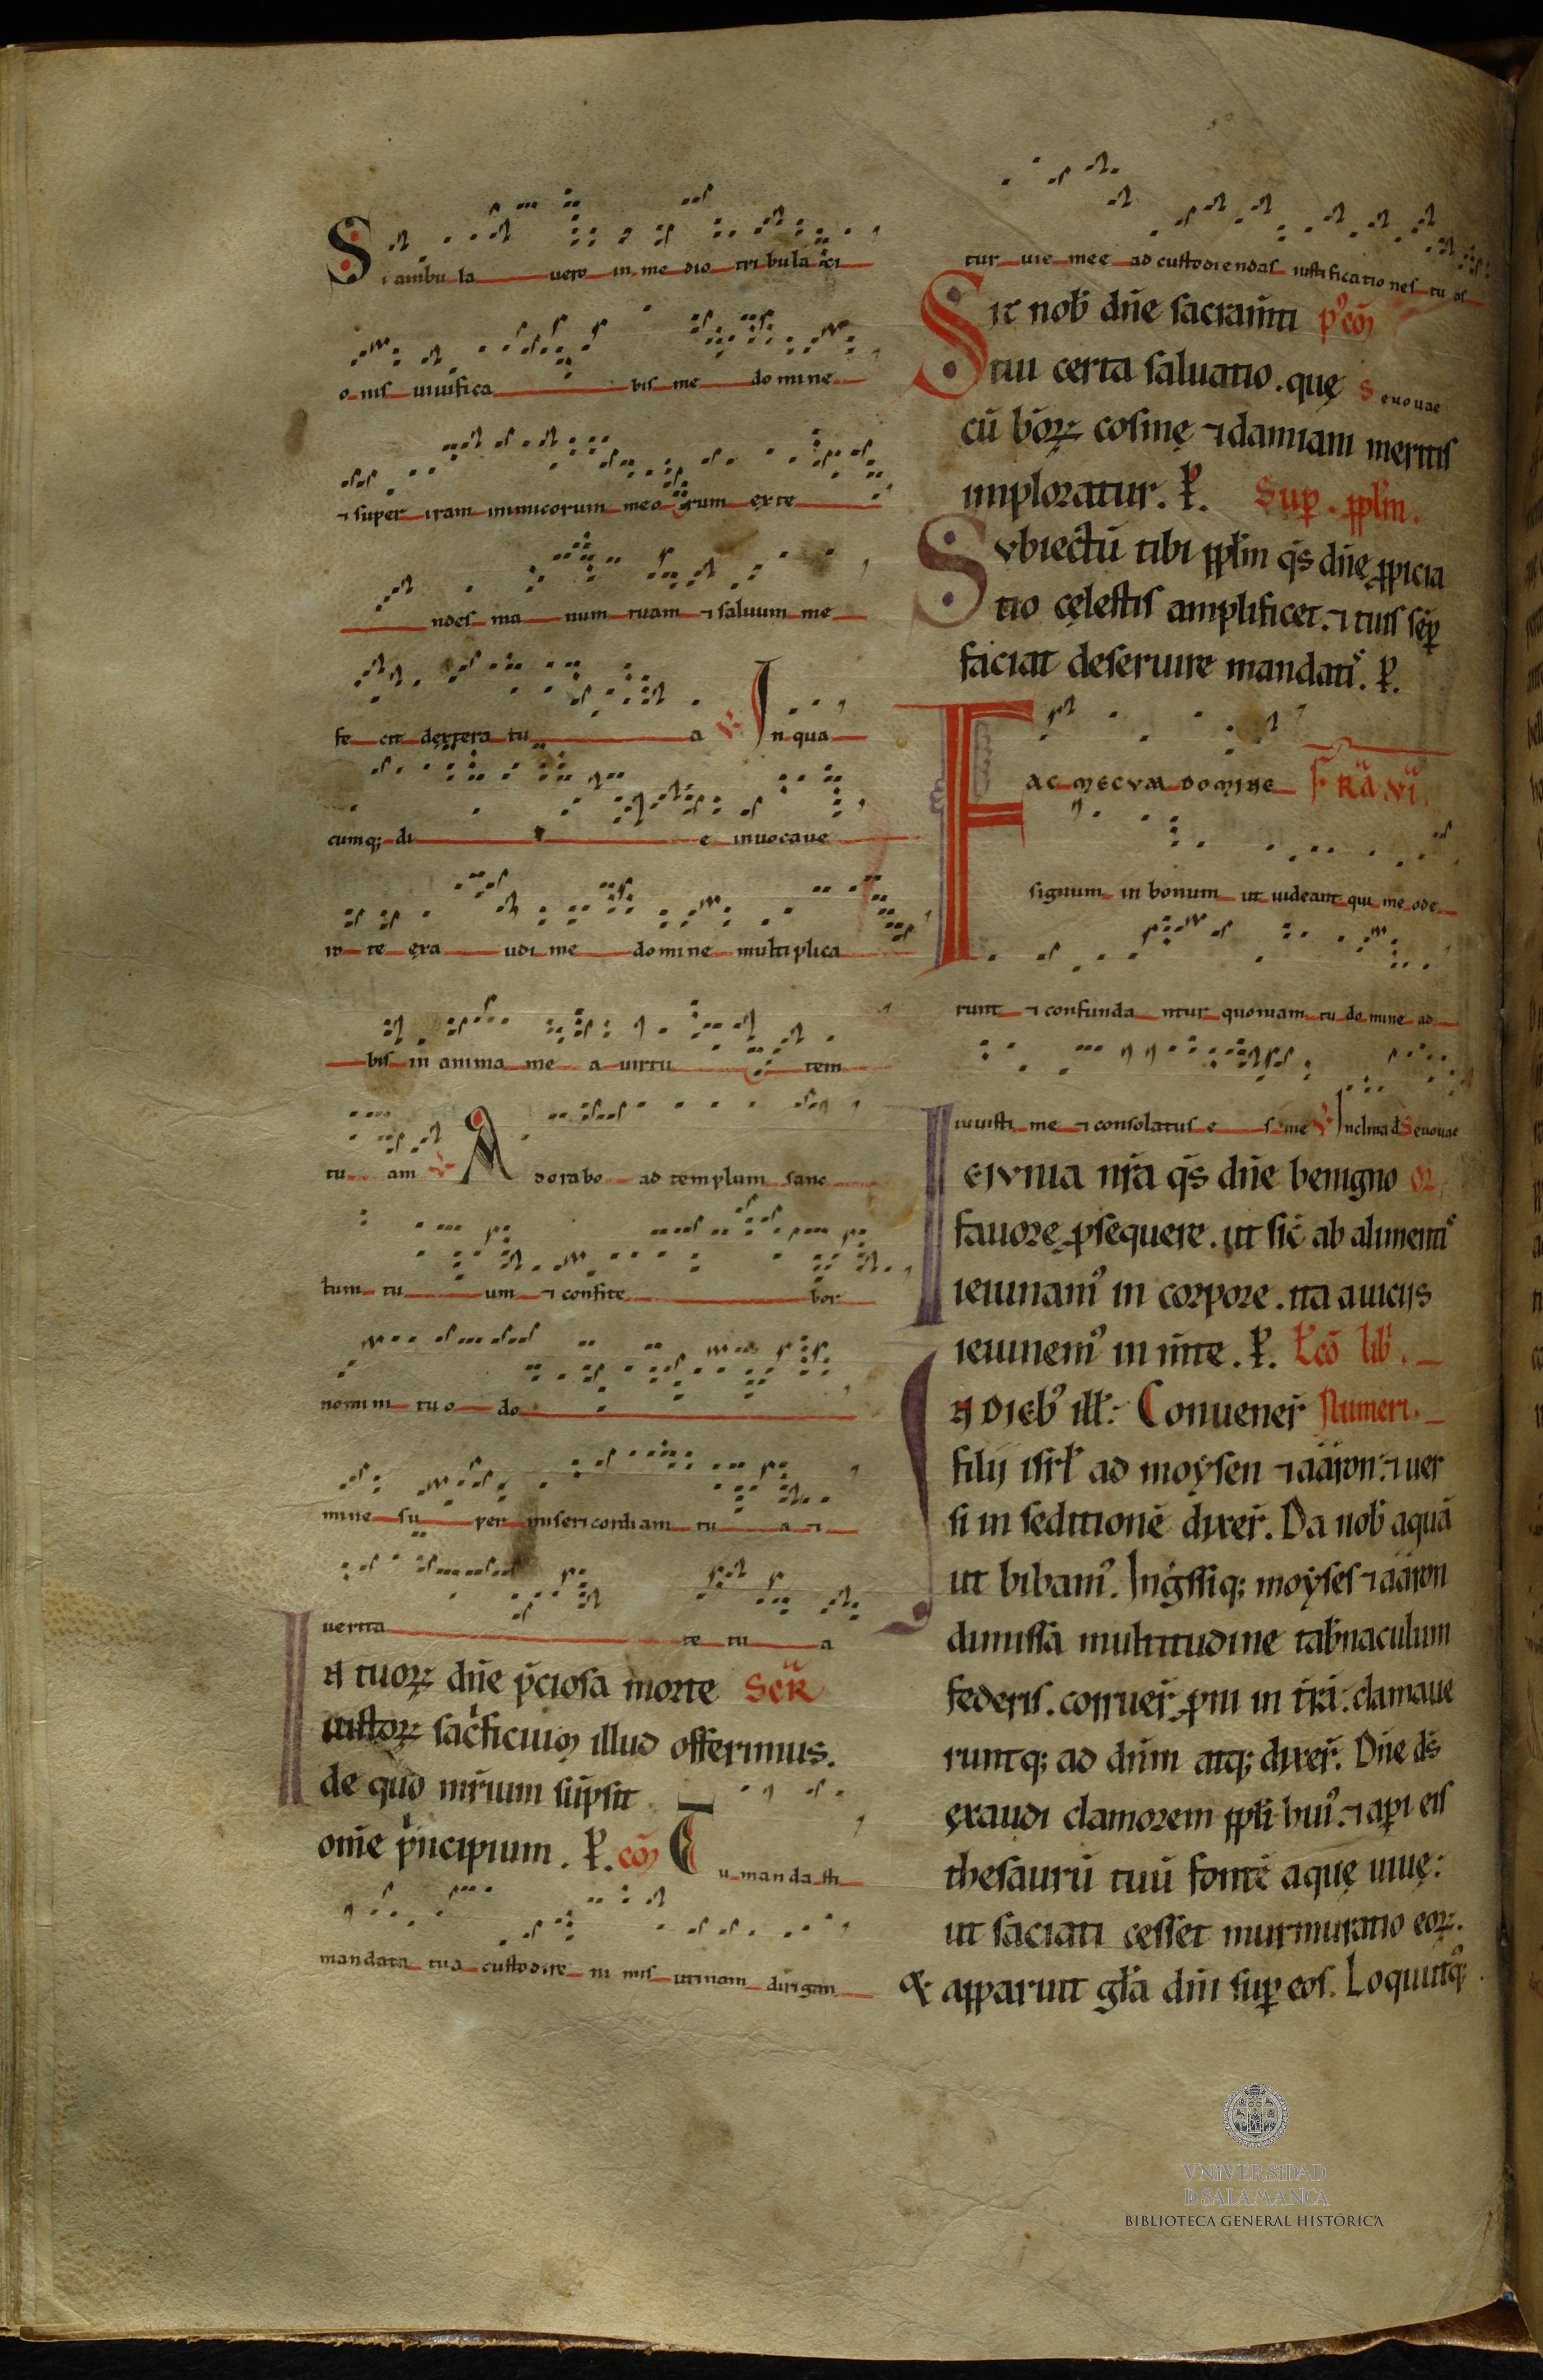 Si ambula uero in me dio tribulaci
onis uiuifica bis me domine
⁊ super iram inimicorum meorum exte
ndes manum tuam ⁊ saluum me
fecit dextera tua ℣ In qua
cumq; die inuocaue
ro te exaudi me domine multiplica
bis in anima mea uirtutem
tuam ℣ Adorabo ad templum sanc
tum tuum ⁊ confitebor
nomini tuo do
mine super misericordiam tuam ⁊
uerita te tua
In tuoꝝ dn̄e p̄ciosa morte Secr̄
iustoꝝ sac̍ficiuꝫ illud offerimus.
de quo mr̄ium sūpsit
om̄e p̍ncipium. P̲. cōꝫ Tu mandasti
mandata tua custodire nimis utinam dirigan
tur uie mee ad custodiendas iustificationes tuas
Sit nob̄ dn̄e sacram̄ti p᷒cōꝫ
tui certa saluatio. quę Seuouae
cū b̄oꝝ cosmę ⁊ damiani meritis
imploratur. P̲. Sup̲. pp̄lm̄.
Svbiectū tibi pp̄lm̄ q̄s dn̄ę ꝓpicia
tio cęlestis amplificet. ⁊ tuis sēp̲
faciat deseruire mandatis. P̲.
FAC MECVM DOMINE Fr̄a .vi.
signum in bonum ut uideant qui me ode
runt ⁊ confundantur quoniam tu domine ad
iuuisti me ⁊ consolatus es me ℣ Inclina d̄ Seuouae
Ieivnia nr̄a q̄s dn̄e benigno or̄
fauore ꝓsequere. ut sic̄ ab alimentis
ieiunam᷒ in corpore. ita a uiciis
ieiunem᷒ in m̄te. P̲. Lc̄o lib̄.
In dieb᷒ ill̄: Conuener̄ Numeri.
filij isrl̄ ad moẏsen ⁊ aaron: ⁊ uer
si in seditionē dixer̄. Da nob̄ aquā
ut bibam᷒. Ing̍ssiq; moẏses ⁊ aaron
dimissa multitudine tab̄naculum
federis. corruer̄ p̲ni in t̄rā: clamaue
runtq; ad dn̄m atq; dixer̄. Dn̄e ds̄
exaudi clamorem pp̄li hui᷒. ⁊ ap̲i eis
thesaurū tuū fontē aquę uiuę:
ut saciati cesset murmuratio eoꝝ.
Et apparuit gl̄a dn̄i sup̲ eos. Locutusq;
VNIVERSIDAD
D SALAMANCA
BIBLIOTECA GENERAL HISTÓRICA